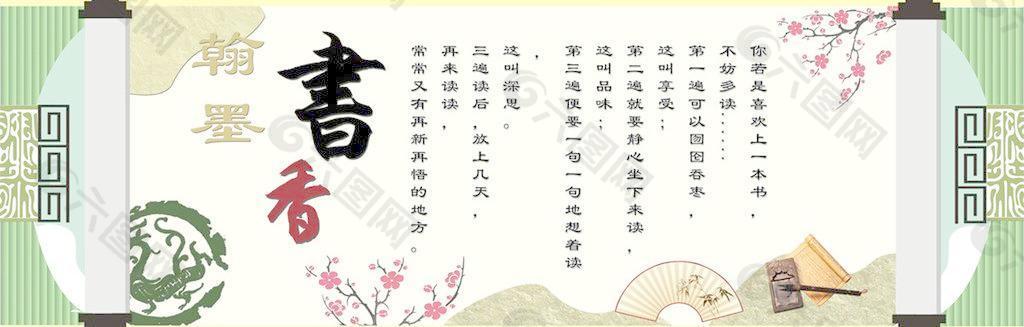 你若是喜欢上一本书，
不妨多读.....
第一遍可以囫囵吞枣，
这叫享受；
第二遍就要静心坐下来读，
这叫品味；
第三遍便要一句一句地想着读
，
这叫深思。
三遍读后，放上几天，
再来读读，
常常又有再新再悟的地方。
書香
翰墨
六图网